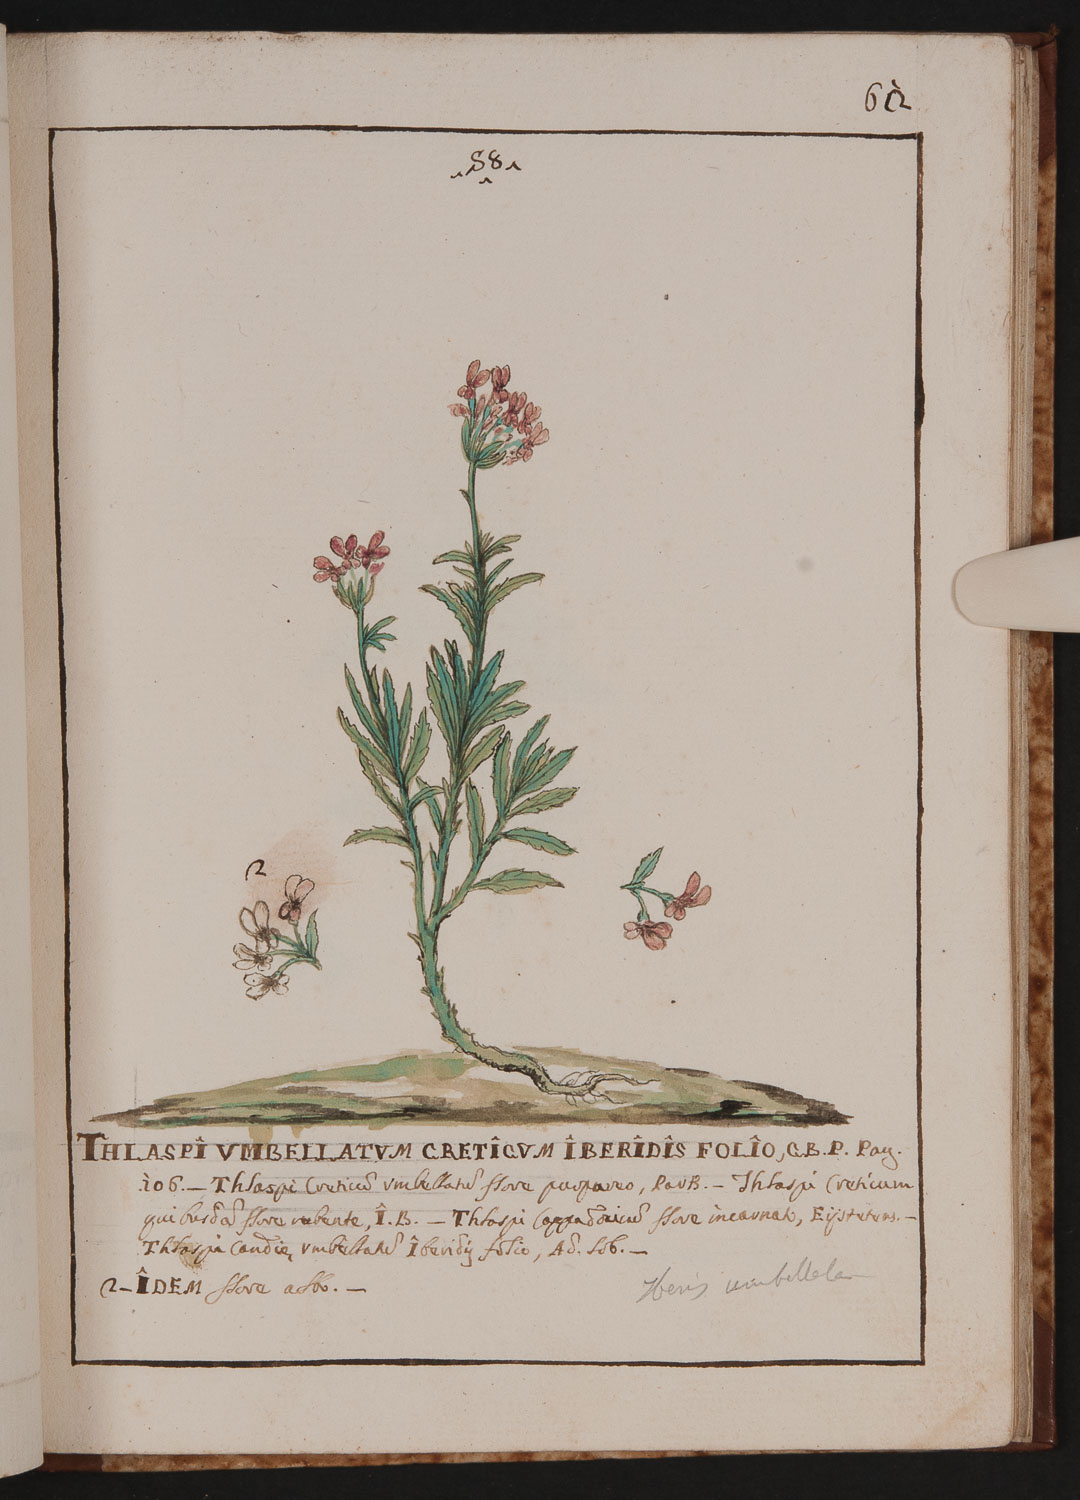 62
58
2
THLASPÎ VMBELLATVM CRETÎCVM ÎBERÎDÎS FOLÎO, C.B.P. Pag.
106. — Thlaspi Creticũ vmbellatũ flore purpureo, ParB. — Thlaspi Creticum
quibusdã flore rubente, Î.B. — Thlaspi Cappadoicũ flore incarnato, Eÿstetens. —
Thlaspi Candiæ, vmbellatũ Îberidis folio, Ad. Lob. —
2 — ÎDEM flore albo. —
Iberis umbellata